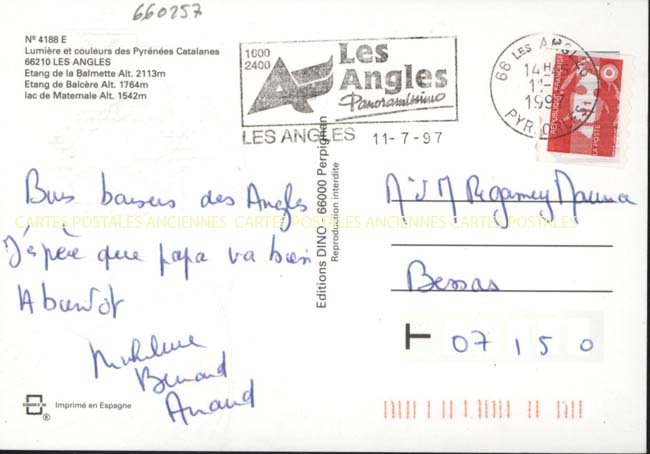 660257
Nº 4188 E
Lumière et couleurs des Pyrénées Catalanes
66210 LES ANGLES
Etang de la Balmette Alt. 2113m
Etang de Balcère Alt. 1764m
lac de Matemale Alt. 1542m
1600
2400
Les
Angles
Panoramissimo
LES ANGLES 11-7-97
66 LES ANGLES
14H
11-
199
PYR.
REPUBLIQUE FRANÇAISE
LA POSTE
Bons baisers des Angles
J'espère que papa va bien
A bientôt
Micheline
Bernard
Arnaud
Editions DINO - 66000 Perpignan
Reproduction interdite
M Regamey Maurice
Bessas
T 07150
CARTES POSTALES ANCIENNES CARTES POSTALES ANCIENNES CARTES POSTALES ANCIENNES
Imprimé en Espagne